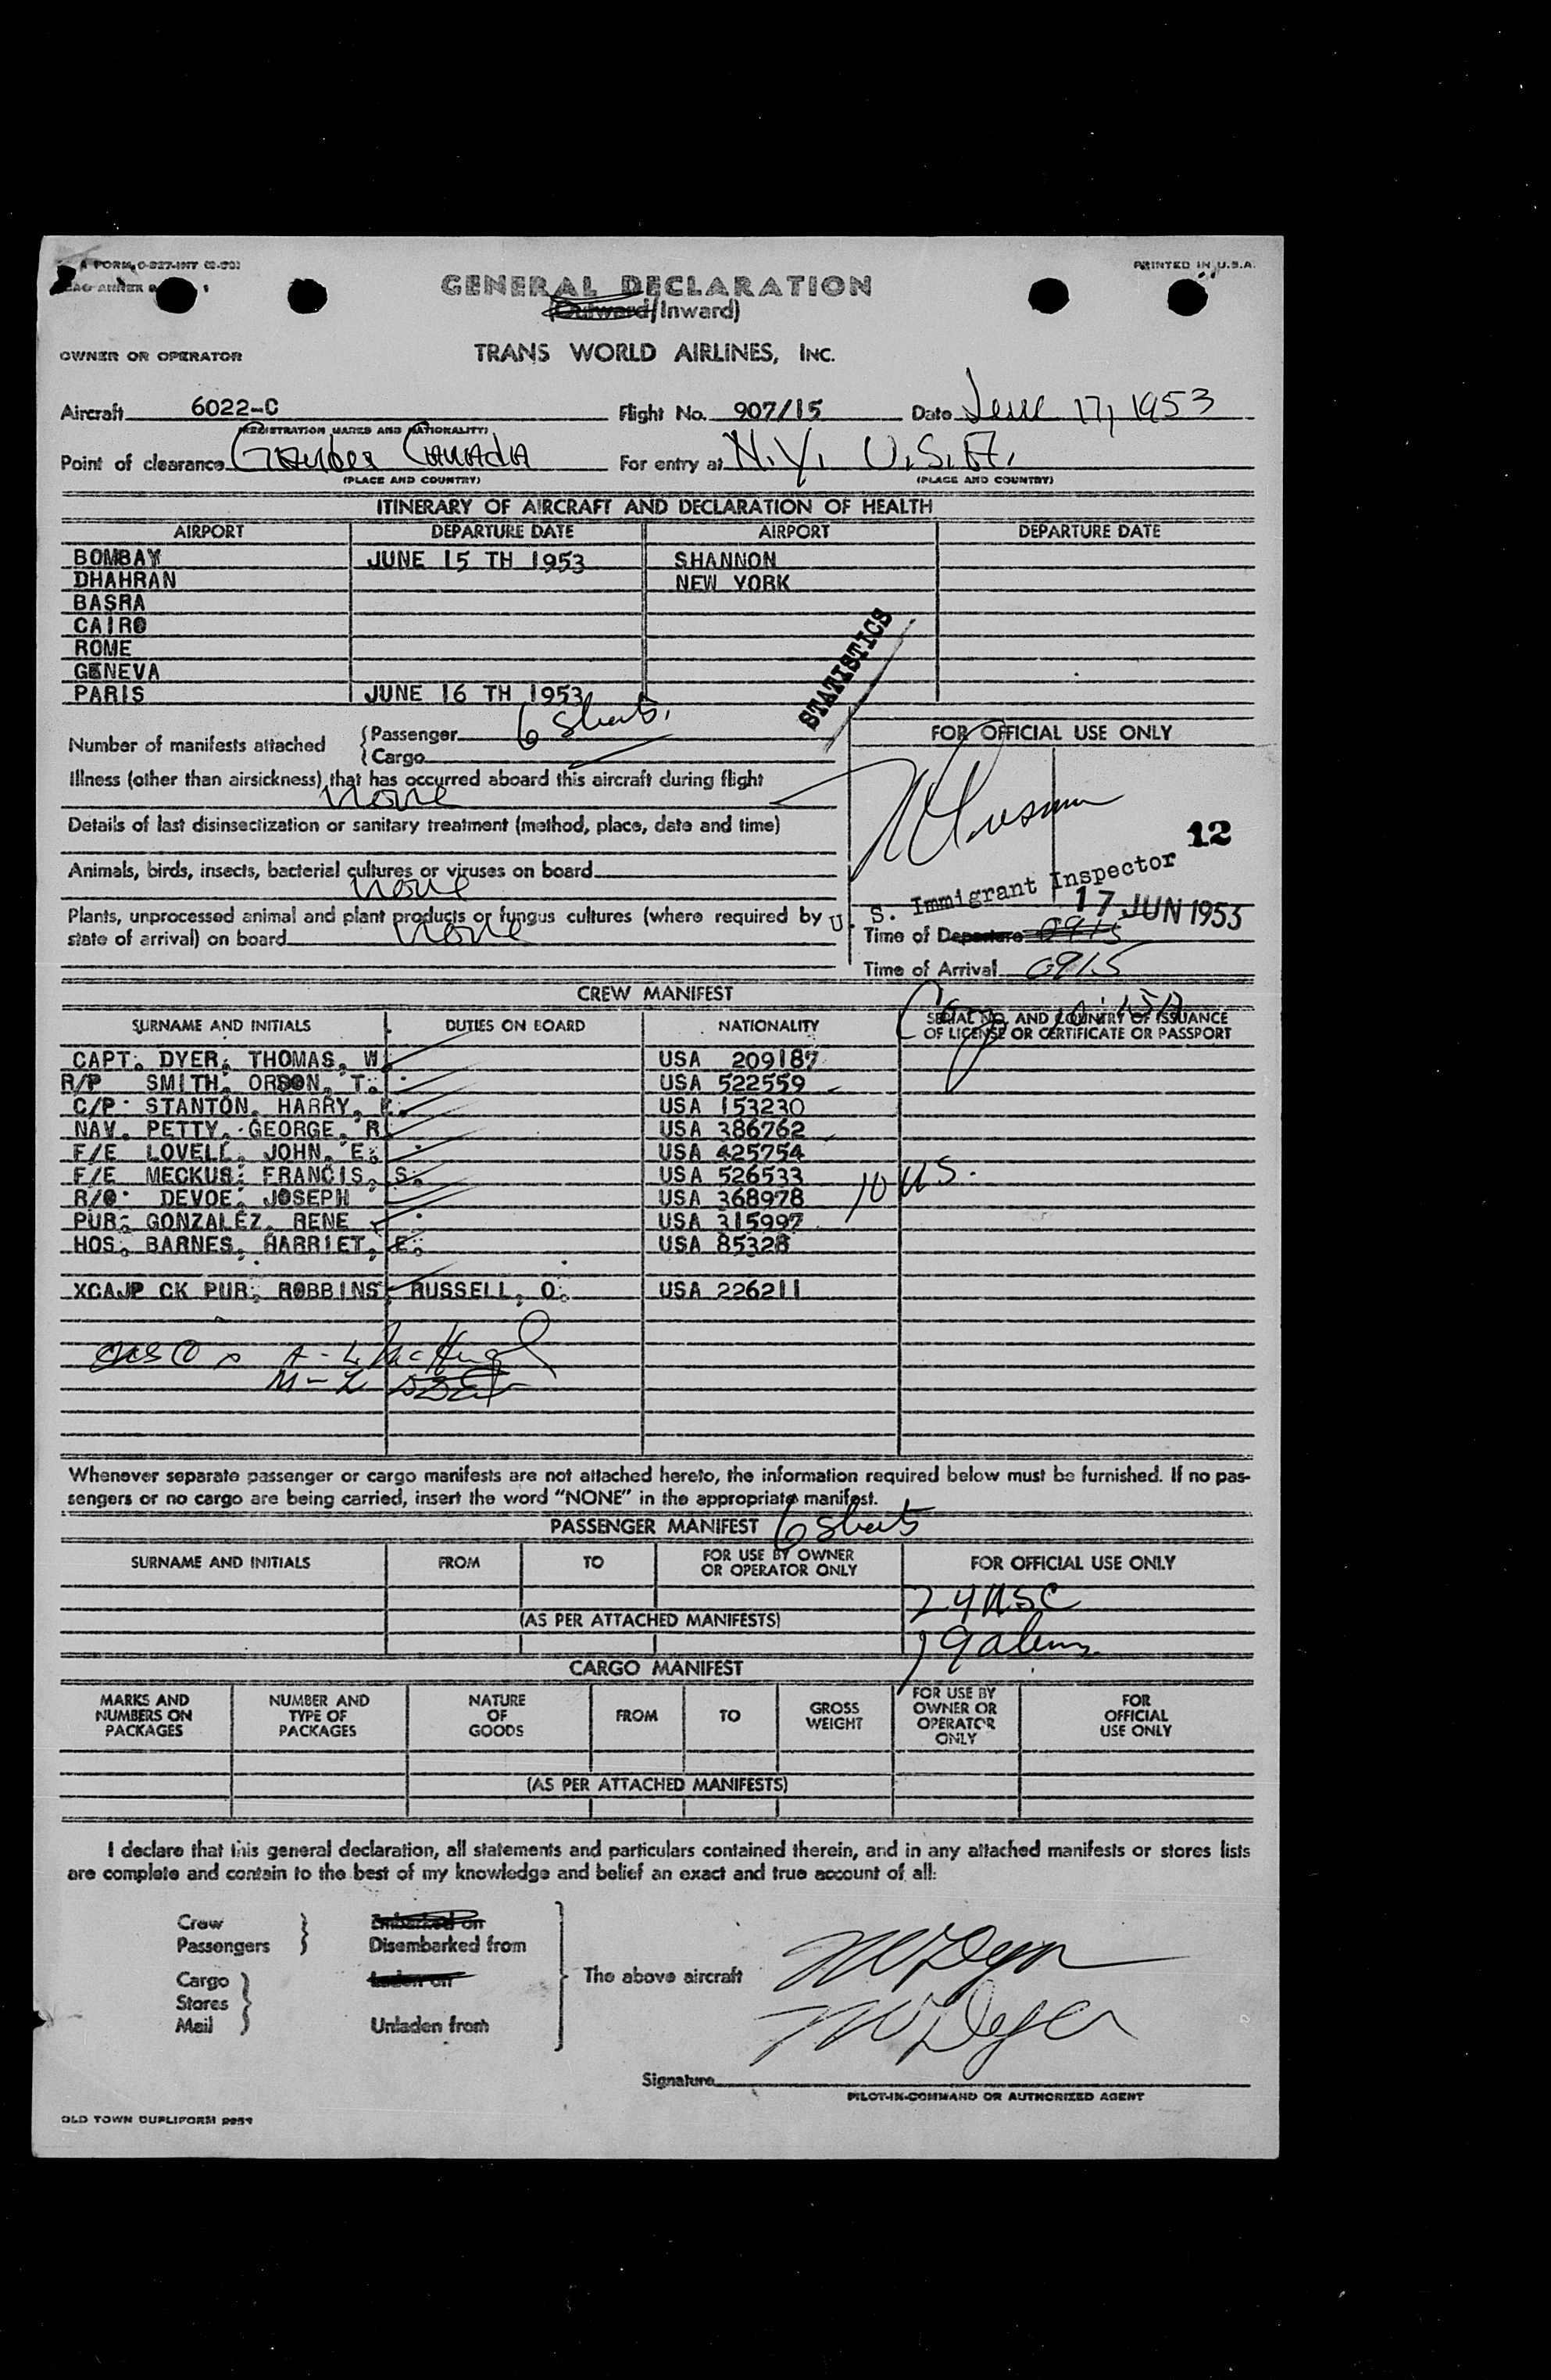 FORM O-827-INT (2-50)
PRINTED IN U.S.A.
GENERAL DECLARATION
(Outward/Inward)
OWNER OR OPERATOR TRANS WORLD AIRLINES, INC.
Aircraft 6022-C Flight No. 907/15 Date June 17, 1953
(REGISTRATION MARKS AND NATIONALITY)
Point of clearance Gander Canada For entry at N.Y. U.S.A.
(PLACE AND COUNTRY) (PLACE AND COUNTRY)
ITINERARY OF AIRCRAFT AND DECLARATION OF HEALTH
AIRPORT DEPARTURE DATE AIRPORT DEPARTURE DATE
BOMBAY JUNE 15 TH 1953 SHANNON
DHAHRAN NEW YORK
BASRA
CAIRO
ROME
GENEVA
PARIS JUNE 16 TH 1953
STATISTICS
Number of manifests attached { Passenger 6 Sheets.
{ Cargo
FOR OFFICIAL USE ONLY
Illness (other than airsickness) that has occurred aboard this aircraft during flight
none
Details of last disinsectization or sanitary treatment (method, place, date and time)
12
Animals, birds, insects, bacterial cultures or viruses on board
none
U. S. Immigrant Inspector
17 JUN 1953
Plants, unprocessed animal and plant products or fungus cultures (where required by
state of arrival) on board none
Time of Departure 0915
Time of Arrival 0915
CREW MANIFEST
SURNAME AND INITIALS DUTIES ON BOARD NATIONALITY SERIAL NO. AND COUNTRY OF ISSUANCE
OF LICENSE OR CERTIFICATE OR PASSPORT
CAPT. DYER, THOMAS, W. USA 209187
R/P SMITH, ORSON, T. USA 522559
C/P STANTON, HARRY, USA 153230
NAV. PETTY, GEORGE, R. USA 386762
F/E LOVELL, JOHN, E. USA 425754
F/E MECKUS, FRANCIS, S. USA 526533
10 US.
R/O DEVOE, JOSEPH USA 368978
PUR. GONZALEZ, RENE USA 315997
HOS. BARNES, HARRIET, E. USA 85328
XCAJP CK PUR. ROBBINS, RUSSELL, O. USA 226211
A-L McHugh
M-Z
Whenever separate passenger or cargo manifests are not attached hereto, the information required below must be furnished. If no pas-
sengers or no cargo are being carried, insert the word "NONE" in the appropriate manifest.
PASSENGER MANIFEST 6 Sheets
SURNAME AND INITIALS FROM TO FOR USE BY OWNER
OR OPERATOR ONLY FOR OFFICIAL USE ONLY
24 USC
(AS PER ATTACHED MANIFESTS)
19 aliens
CARGO MANIFEST
MARKS AND
NUMBERS ON
PACKAGES NUMBER AND
TYPE OF
PACKAGES NATURE
OF
GOODS FROM TO GROSS
WEIGHT FOR USE BY
OWNER OR
OPERATOR
ONLY FOR
OFFICIAL
USE ONLY
(AS PER ATTACHED MANIFESTS)
I declare that this general declaration, all statements and particulars contained therein, and in any attached manifests or stores lists
are complete and contain to the best of my knowledge and belief an exact and true account of all:
Crew Embarked on
Passengers Disembarked from
Cargo Laden on The above aircraft TWDyer
Stores
Mail Unladen from TWDyer
Signature
PILOT-IN-COMMAND OR AUTHORIZED AGENT
OLD TOWN DUPLIFORM